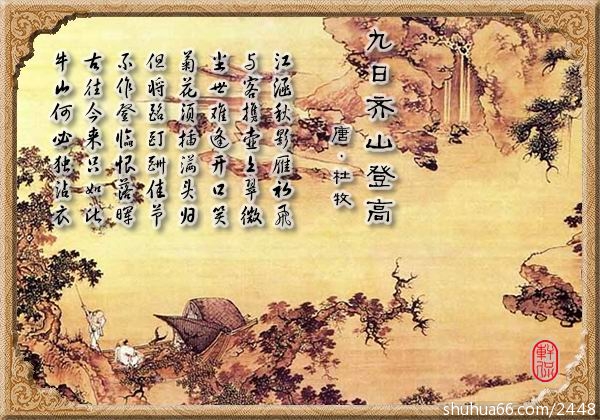 九日齐山登高
唐·杜牧
江涵秋影雁初飞
与客携壶上翠微
尘世难逢开口笑
菊花须插满头归
但将酩酊酬佳节
不作登临恨落晖
古往今来只如此
牛山何必独沾衣
shuhua66.com/2448